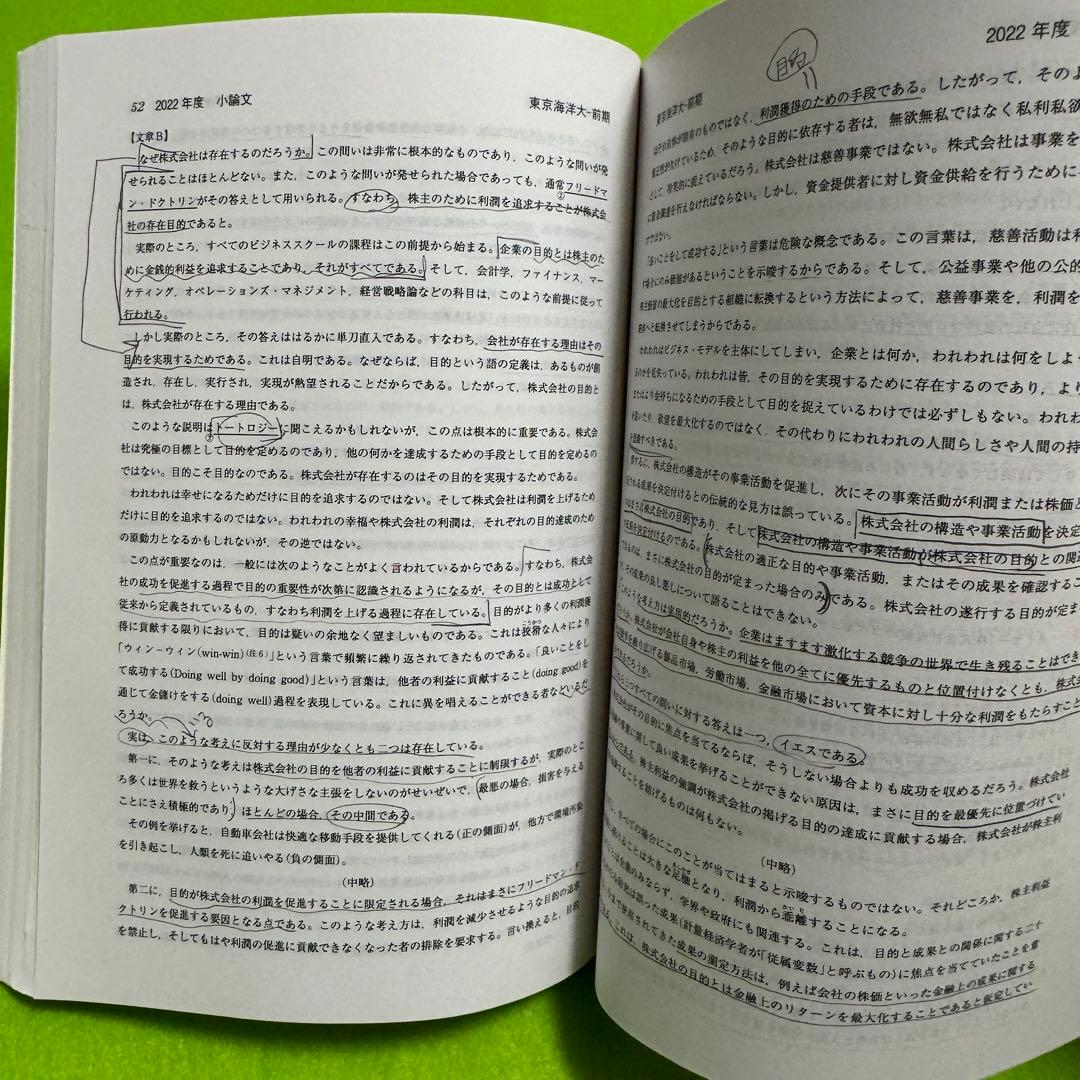 52 2022年度 小論文
東京海洋大-前期
【文章B】
なぜ株式会社は存在するのだろうか。この問いは非常に根本的なものであり，このような問いが発
せられることはほとんどない。また，このような問いが発せられた場合であっても，通常フリードマ
ン・ドクトリンがその答えとして用いられる。すなわち，株主のために利潤を追求することが株式会
社の存在目的であると。
実際のところ，すべてのビジネススクールの課程はこの前提から始まる。企業の目的とは株主のた
めに金銭的利益を追求することであり，それがすべてである。そして，会計学，ファイナンス，マー
ケティング，オペレーションズ・マネジメント，経営戦略論などの科目は，このような前提に従って
行われる。
しかし実際のところ，その答えははるかに単刀直入である。すなわち，会社が存在する理由はその
目的を実現するためである。これは自明である。なぜならば，目的という語の定義は，あるものが創
造され，存在し，実行され，実現が熱望されることだからである。したがって，株式会社の目的と
は，株式会社が存在する理由である。
このような説明はトートロジーに聞こえるかもしれないが，この点は根本的に重要である。株式会
社は究極の目標として目的を定めるのであり，他の何かを達成するための手段として目的を定めるの
ではない。目的こそ目的なのである。株式会社が存在するのはその目的を実現するためである。
われわれは幸せになるためだけに目的を追求するのではない。そして株式会社は利潤を上げるため
だけに目的を追求するのではない。われわれの幸福や株式会社の利潤は，それぞれの目的達成のため
の原動力となるかもしれないが，その逆ではない。
この点が重要なのは，一般には次のようなことがよく言われているからである。すなわち，株式会
社の成功を促進する過程で目的の重要性が次第に認識されるようになるが，その目的とは成功として
従来から定義されているもの，すなわち利潤を上げる過程に存在している。目的がより多くの利潤獲
得に貢献する限りにおいて，目的は疑いの余地なく望ましいものである。これは狡猾な人々により
こうかつ
「ウィン-ウィン(win-win)(注6)」という言葉で頻繁に繰り返されてきたものである。「良いことをし
て成功する(Doing well by doing good)」という言葉は，他者の利益に貢献すること(doing good)を
通じて金儲けをする(doing well)過程を表現している。これに異を唱えることができる者などいるだ
ろうか。
いる
実は，このような考えに反対する理由が少なくとも二つは存在している。
第一に，そのような考えは株式会社の目的を他者の利益に貢献することに制限するが，実際のとこ
ろ多くは世界を救うというような大げさな主張をしないのがせいぜいで，最悪の場合，損害を与える
ことにさえ積極的であり，ほとんどの場合，その中間である。
その例を挙げると，自動車会社は快適な移動手段を提供してくれる(正の側面)が，他方で環境汚染
を引き起こし，人類を死に追いやる(負の側面)。
(中略)
第二に，目的が株式会社の利潤を促進することに限定される場合，それはまさにフリードマン・ド
クトリンを促進する要因となる点である。このような考え方は，利潤を減少させるような目的の追求
を禁止し，そしてもはや利潤の促進に貢献できなくなった者の排除を要求する。言い換えると，目的
2022年度
東京海洋大-前期
目的
のではなく，利潤獲得のための手段である。したがって，そのよ
そのような目的に依存する者は，無欲無私ではなく私利私欲
冷笑的に捉えているだろう。株式会社は慈善事業ではない。株式会社は事業を
行えなければならない。しかし，資金提供者に対し資金供給を行うために
ではない。
成功する」という言葉は危険な概念である。この言葉は，慈善活動は利
価値があるということを示唆するからである。そして，公益事業や他の公的
最大化を目的とする組織に転換するという方法によって，慈善事業を，利潤を
転換させてしまうからである。
われわれはビジネス・モデルを主体にしてしまい，企業とは何か，われわれは何をしよう
を見失っている。われわれは皆，その目的を実現するために存在するのであり，より
金持ちになるための手段として目的を捉えているわけでは必ずしもない。われわ
欲望を最大化するのではなく，その代わりにわれわれの人間らしさや人間の持
べきである。
株式会社の構造がその事業活動を促進し，次にその事業活動が利潤または株価と
成果を決定付けるとの伝統的な見方は誤っている。株式会社の構造や事業活動を決定
株式会社の目的であり，そして株式会社の構造や事業活動が株式会社の目的との関連
決定付けるのである。株式会社の適正な目的や事業活動，またはその成果を確認するこ
まさに株式会社の目的が定まった場合のみである。株式会社の遂行する目的が定ま
成果の良し悪しについて語ることはできない。
このような考え方は実用的だろうか。企業はますます激化する競争の世界で生き残ることはでき
株式会社が会社自身や株主の利益を他の全てに優先するものと位置付けなくとも，株式会
製品市場，労働市場，金融市場において資本に対し十分な利潤をもたらすこと
すべての問いに対する答えは一つ，イエスである。
その目的に焦点を当てるならば，そうしない場合よりも成功を収めるだろう。株式会社
関して良い成果を挙げることができない原因は，まさに目的を最優先に位置づけてい
株主利益の強調が株式会社の掲げる目的の達成に貢献する場合，株式会社が株主利
することを妨げるものは何もない。
(中略)
すべての場合にこのことが当てはまると示唆するものではない。それどころか，株主利益
は大きな足枷となり，利潤から乖離することになる。
あしかせ
かいり
企業のみならず，学界や政府にも関連する。これは，目的と成果との関係に関する二十
誤った成果(計量経済学者が「従属変数」と呼ぶもの)に焦点を当てていたことを意
使用されてきた成果の測定方法は，例えば会社の株価といった金融上の成果に関する
株式会社の目的とは金融上のリターンを最大化することであると仮定してい